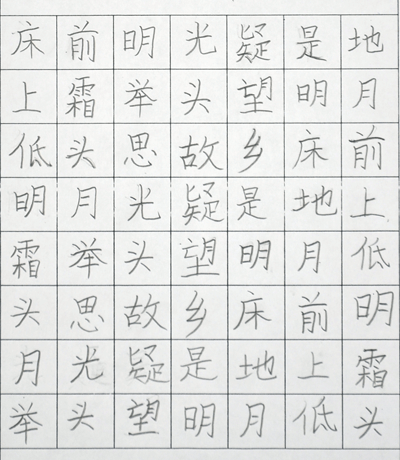 床前明光疑是地
上霜举头望明月
低头思故乡床前
明月光疑是地上
霜举头望明月低
头思故乡床前明
月光疑是地上霜
举头望明月低头